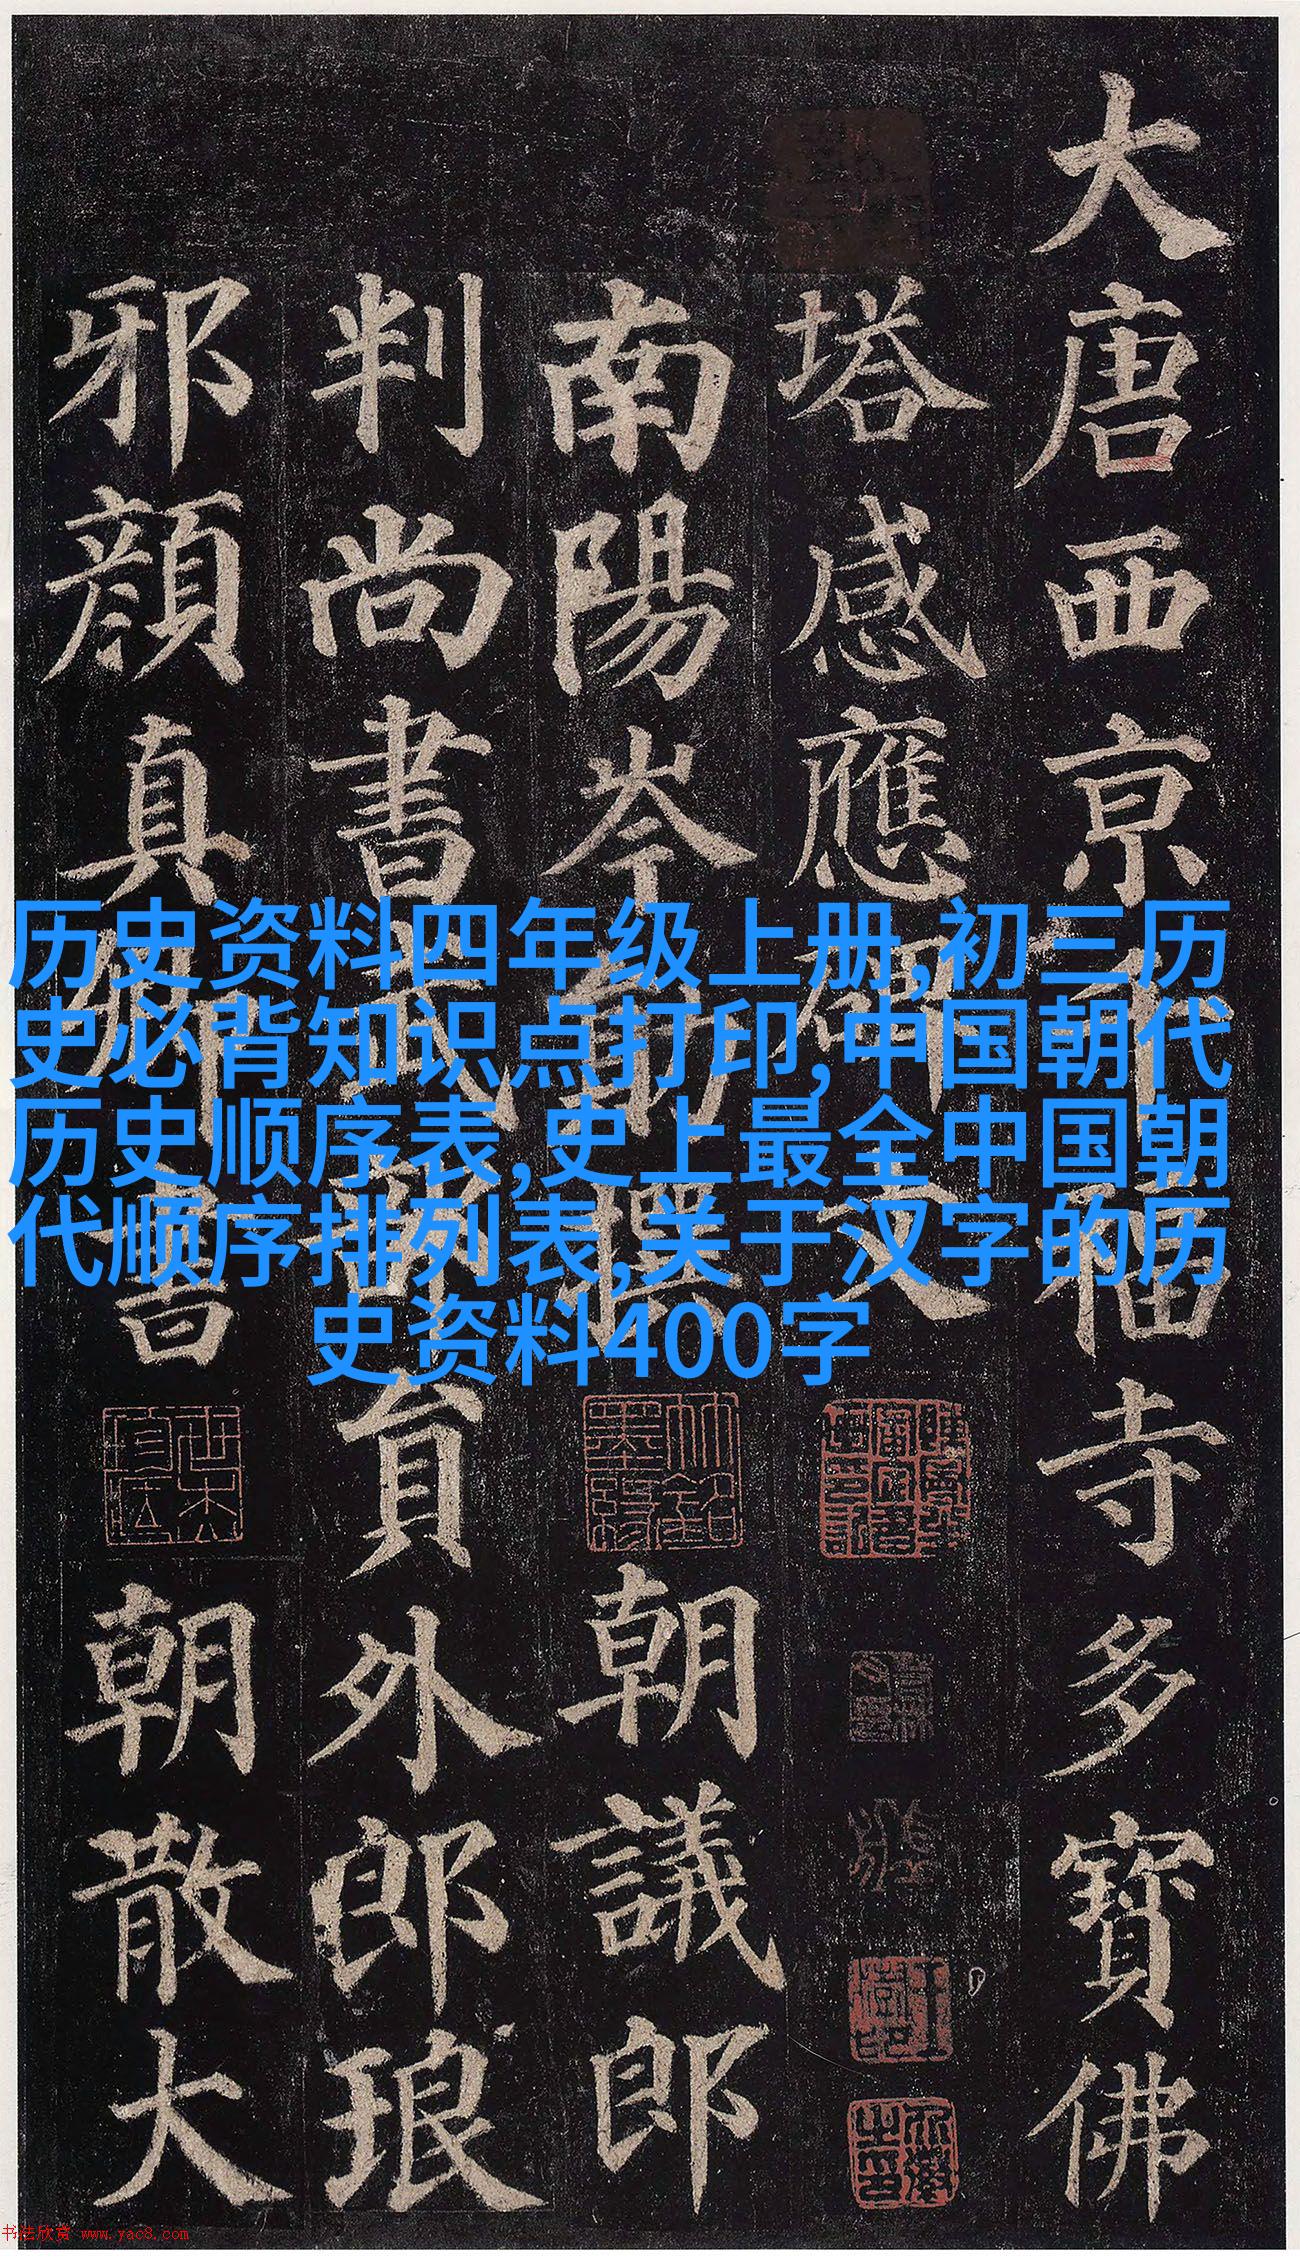 大唐西京千福寺多寶佛
塔感應碑文
南陽岑勛撰朝議郎
判尚書武部員外郎琅
邪顏真卿書朝散大
历史资料四年级上册,初三历
史必背知识点打印,中国朝代
历史顺序表,史上最全中国朝
代顺序排列表,关于汉字的历
史资料400字
书法欣赏 www.yac8.com